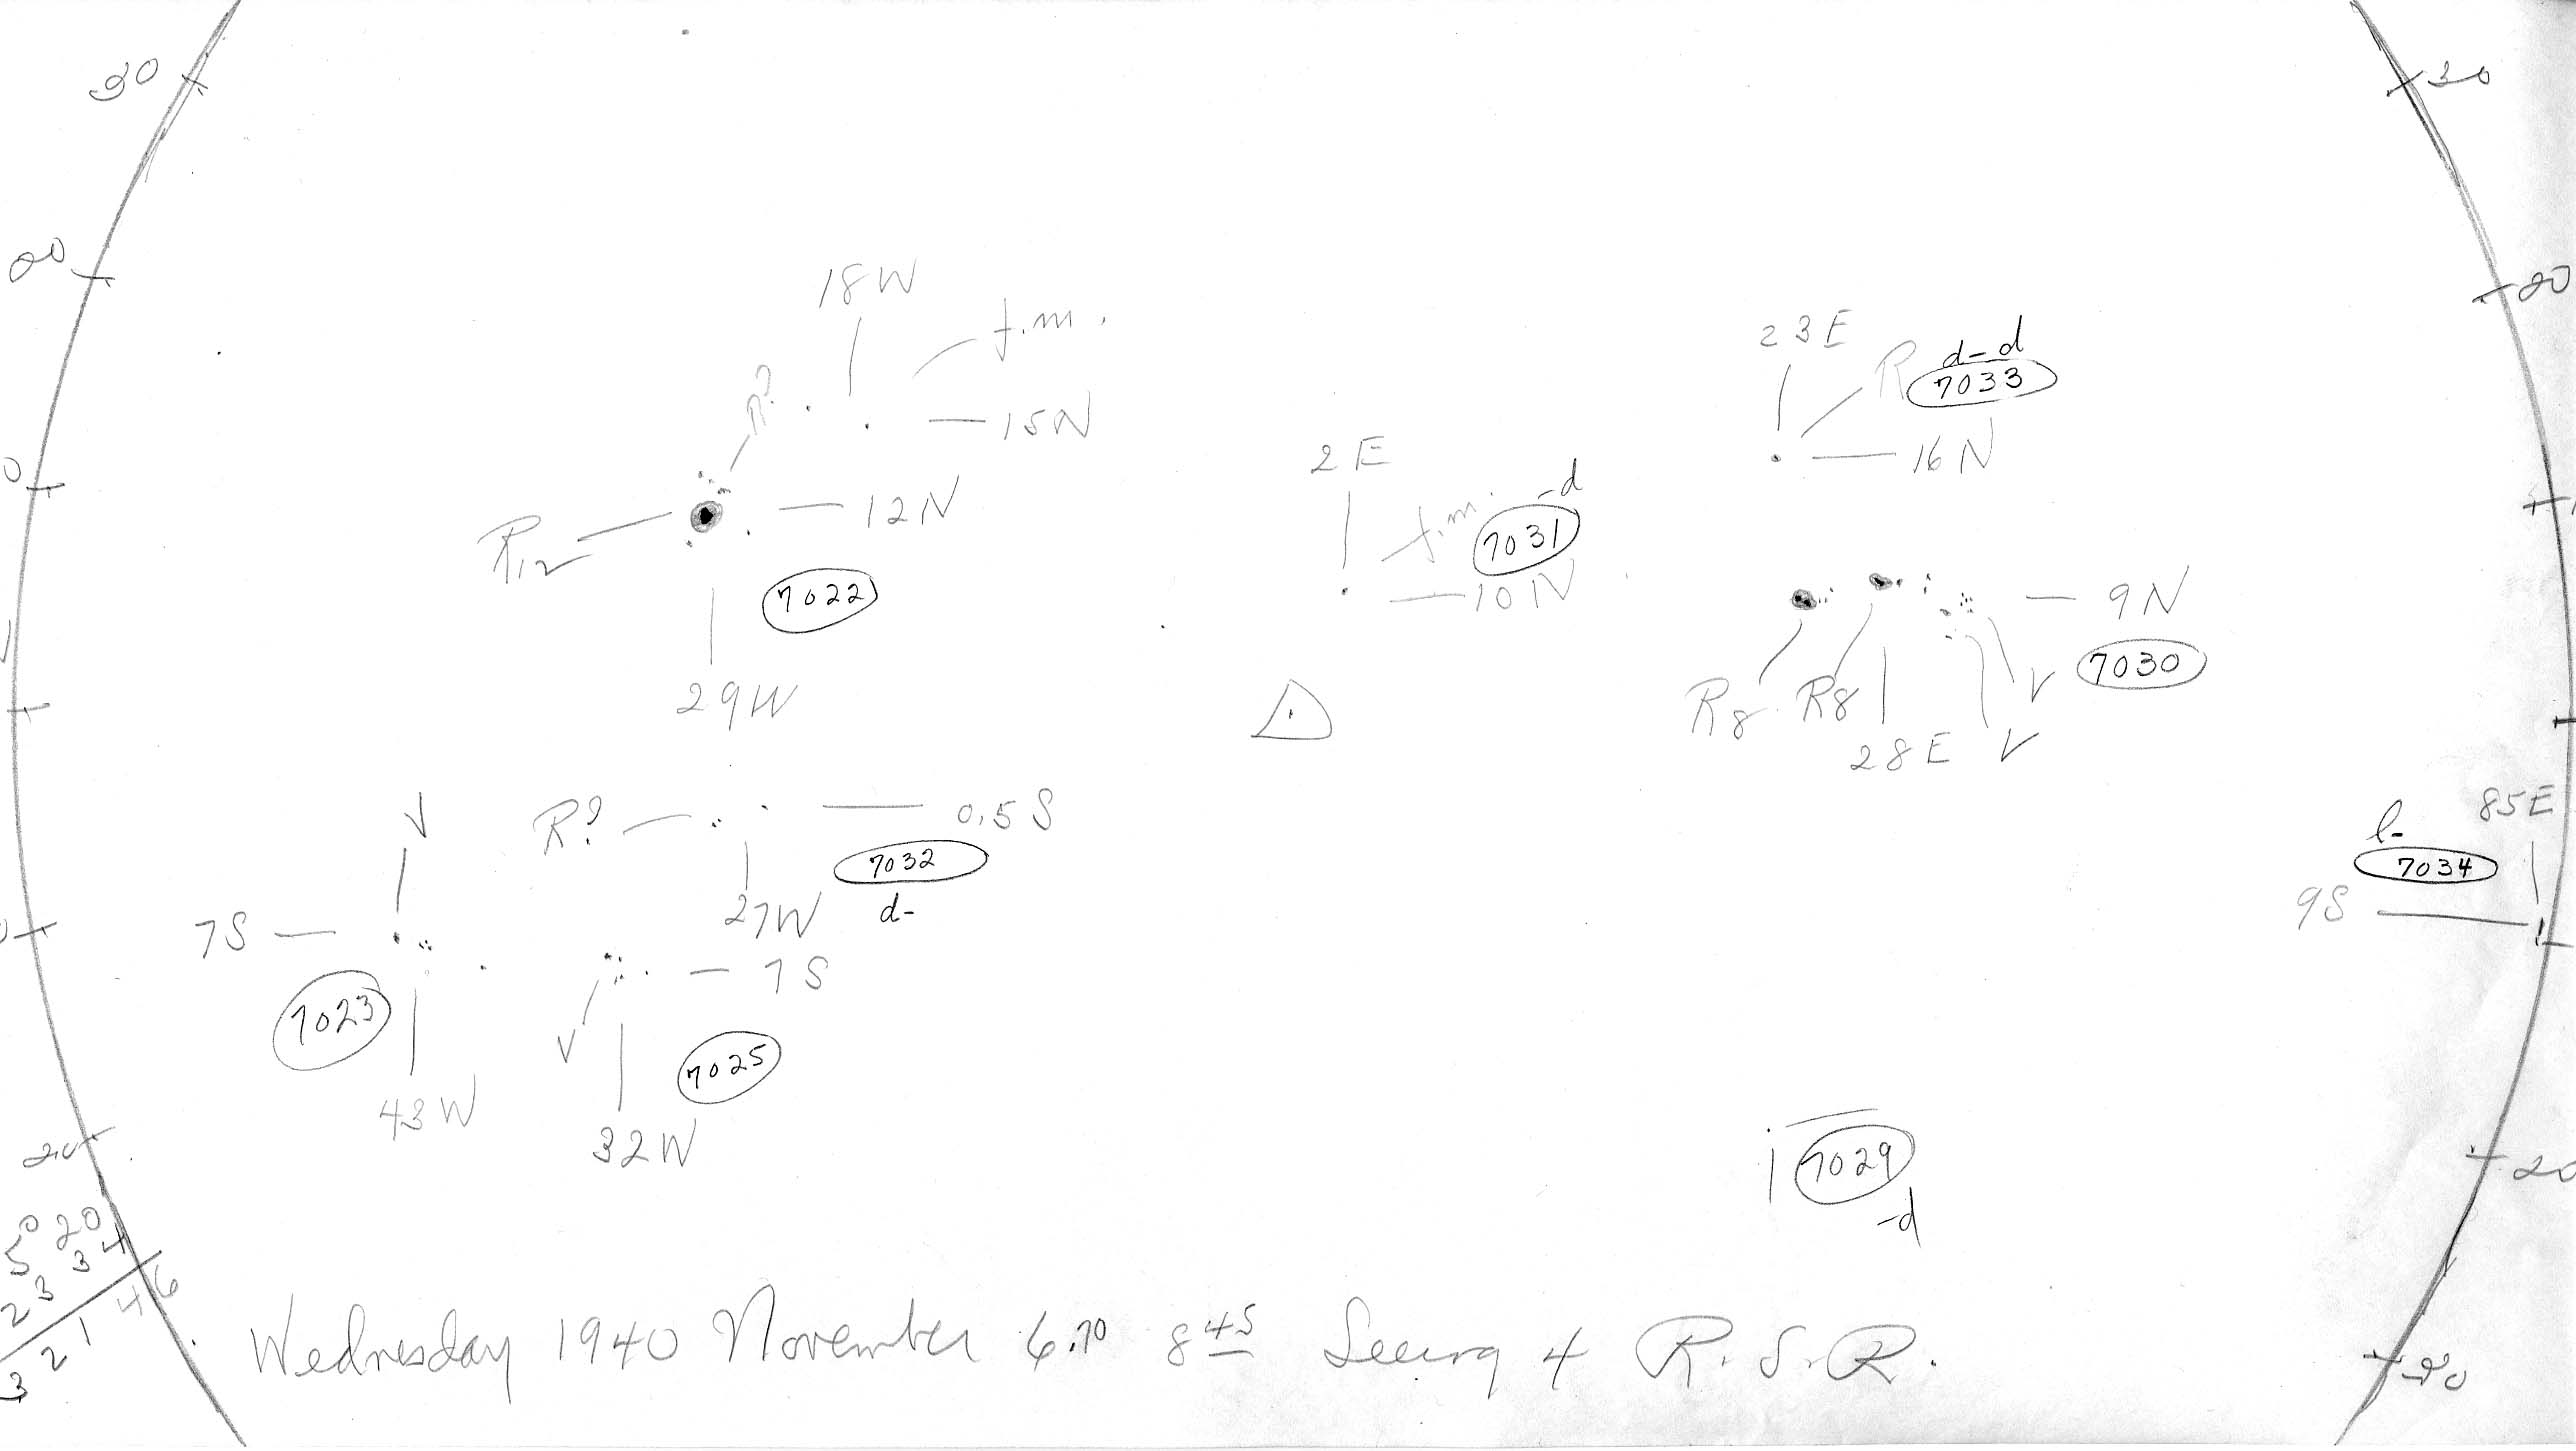 30
30
20
20
18W
f.m.
23E
R
d-d
7033
R?
15N
2E
16N
-d
f.m.
7031
R12
12N
10N
7022
9N
7030
29W
R8 R8
28E V V
V
R?
0.5S
7032
27W
d-
85E
l-
7034
9S
7S
7S
7023
V
7025
43W
32W
20
20
7029
-d
50 20
23 34
321 46
Wednesday 1940 November 6.70 8 45 Seeing 4 R.S.R.